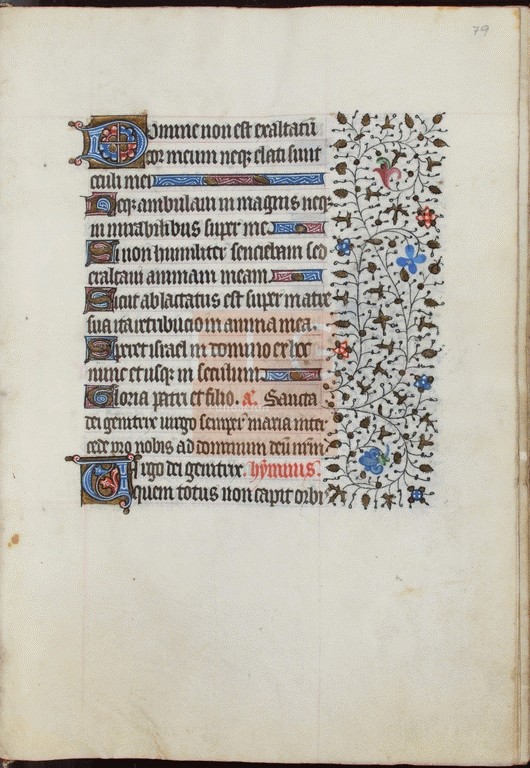 79
Domine non est exaltatū
cor meum neqꝫ elati sunt
occuli mei
Neqꝫ ambulaui in magnis neqꝫ
in mirabilibus super me.
Si non humiliter senciebam sed
exaltaui animam meam
Sicut ablactatus est super matre
sua ita retribucio in anima mea.
Speret israel in domino ex hoc
nunc et usqꝫ in seculum.
Gloria patri et filio. a. Sancta
dei genitrix uirgo semper maria inter
cede pro nobis ad dominum deū nr̄m
Uirgo dei genitrix. hymnus.
quem totus non capit orbis